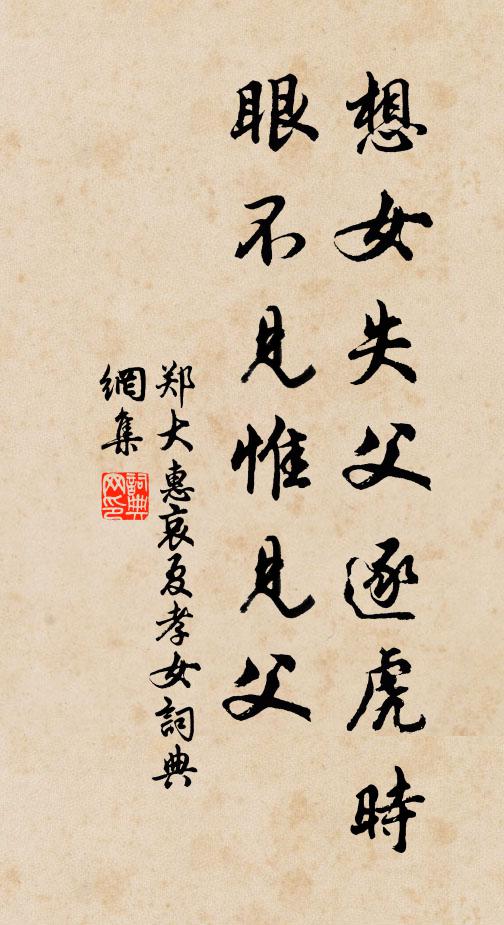 想女失父逐虎時
眼不見惟見父
郑大惠哀夏孝女詞典
網集
詞典
网印